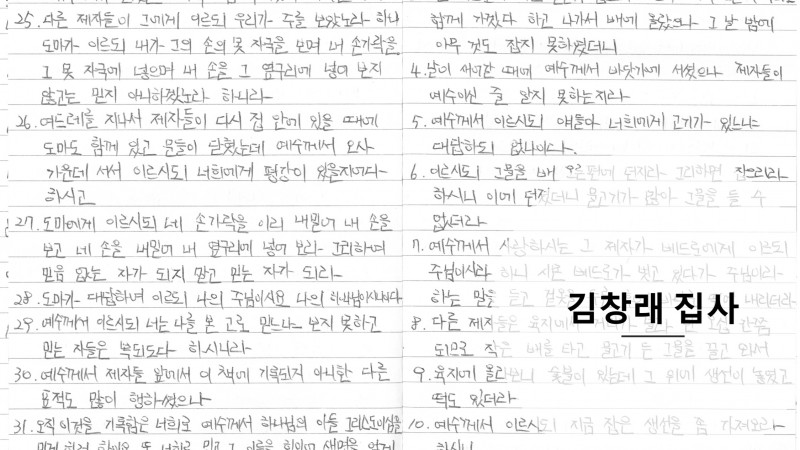 25. 다른 제자들이 그에게 이르되 우리가 주를 보았노라 하니
도마가 이르되 내가 그의 손의 못 자국을 보며 내 손가락을
그 못 자국에 넣으며 내 손을 그 옆구리에 넣어 보지
않고는 믿지 아니하겠노라 하니라
26. 여드레를 지나서 제자들이 다시 집 안에 있을 때에
도마도 함께 있고 문들이 닫혔는데 예수께서 오사
가운데 서서 이르시되 너희에게 평강이 있을지어다
하시고
27. 도마에게 이르시되 네 손가락을 이리 내밀어 내 손을
보고 네 손을 내밀어 내 옆구리에 넣어 보라 그리하여
믿음 없는 자가 되지 말고 믿는 자가 되라
28. 도마가 대답하여 이르되 나의 주님이시요 나의 하나님이시니이다
29. 예수께서 이르시되 너는 나를 본 고로 믿느냐 보지 못하고
믿는 자들은 복되도다 하시니라
30. 예수께서 제자들 앞에서 이 책에 기록되지 아니한 다른
표적도 많이 행하셨으나
31. 오직 이것을 기록함은 너희로 예수께서 하나님의 아들 그리스도이심을
믿게 하려 함이요 또 너희로 믿고 그 이름을 힘입어 생명을 얻게
함께 가겠다 하고 나가서 배에 올랐으나 그 날 밤에
아무 것도 잡지 못하였더니
4. 날이 새어갈 때에 예수께서 바닷가에 서셨으나 제자들이
예수이신 줄 알지 못하는지라
5. 예수께서 이르시되 얘들아 너희에게 고기가 있느냐
대답하되 없나이다.
6. 이르시되 그물을 배 오른편에 던지라 그리하면 잡으리라
하시니 이에 던졌더니 물고기가 많아 그물을 들 수
없더라
7. 예수께서 사랑하시는 그 제자가 베드로에게 이르되
주님이시라 하니 시몬 베드로가 벗고 있다가 주님이라
하는 말을 듣고 겉옷을 내리더라
8. 다른 제자들은 육지에서 거리가 한쯤
되므로 작은 배를 타고 물고기 든 그물을 끌고 와서
9. 육지에 올라보니 숯불이 있는데 그 위에 생선이 놓였고
떡도 있더라
10. 예수께서 이르시되 지금 잡은 생선을 좀 가져오라
하시니
김창래 집사